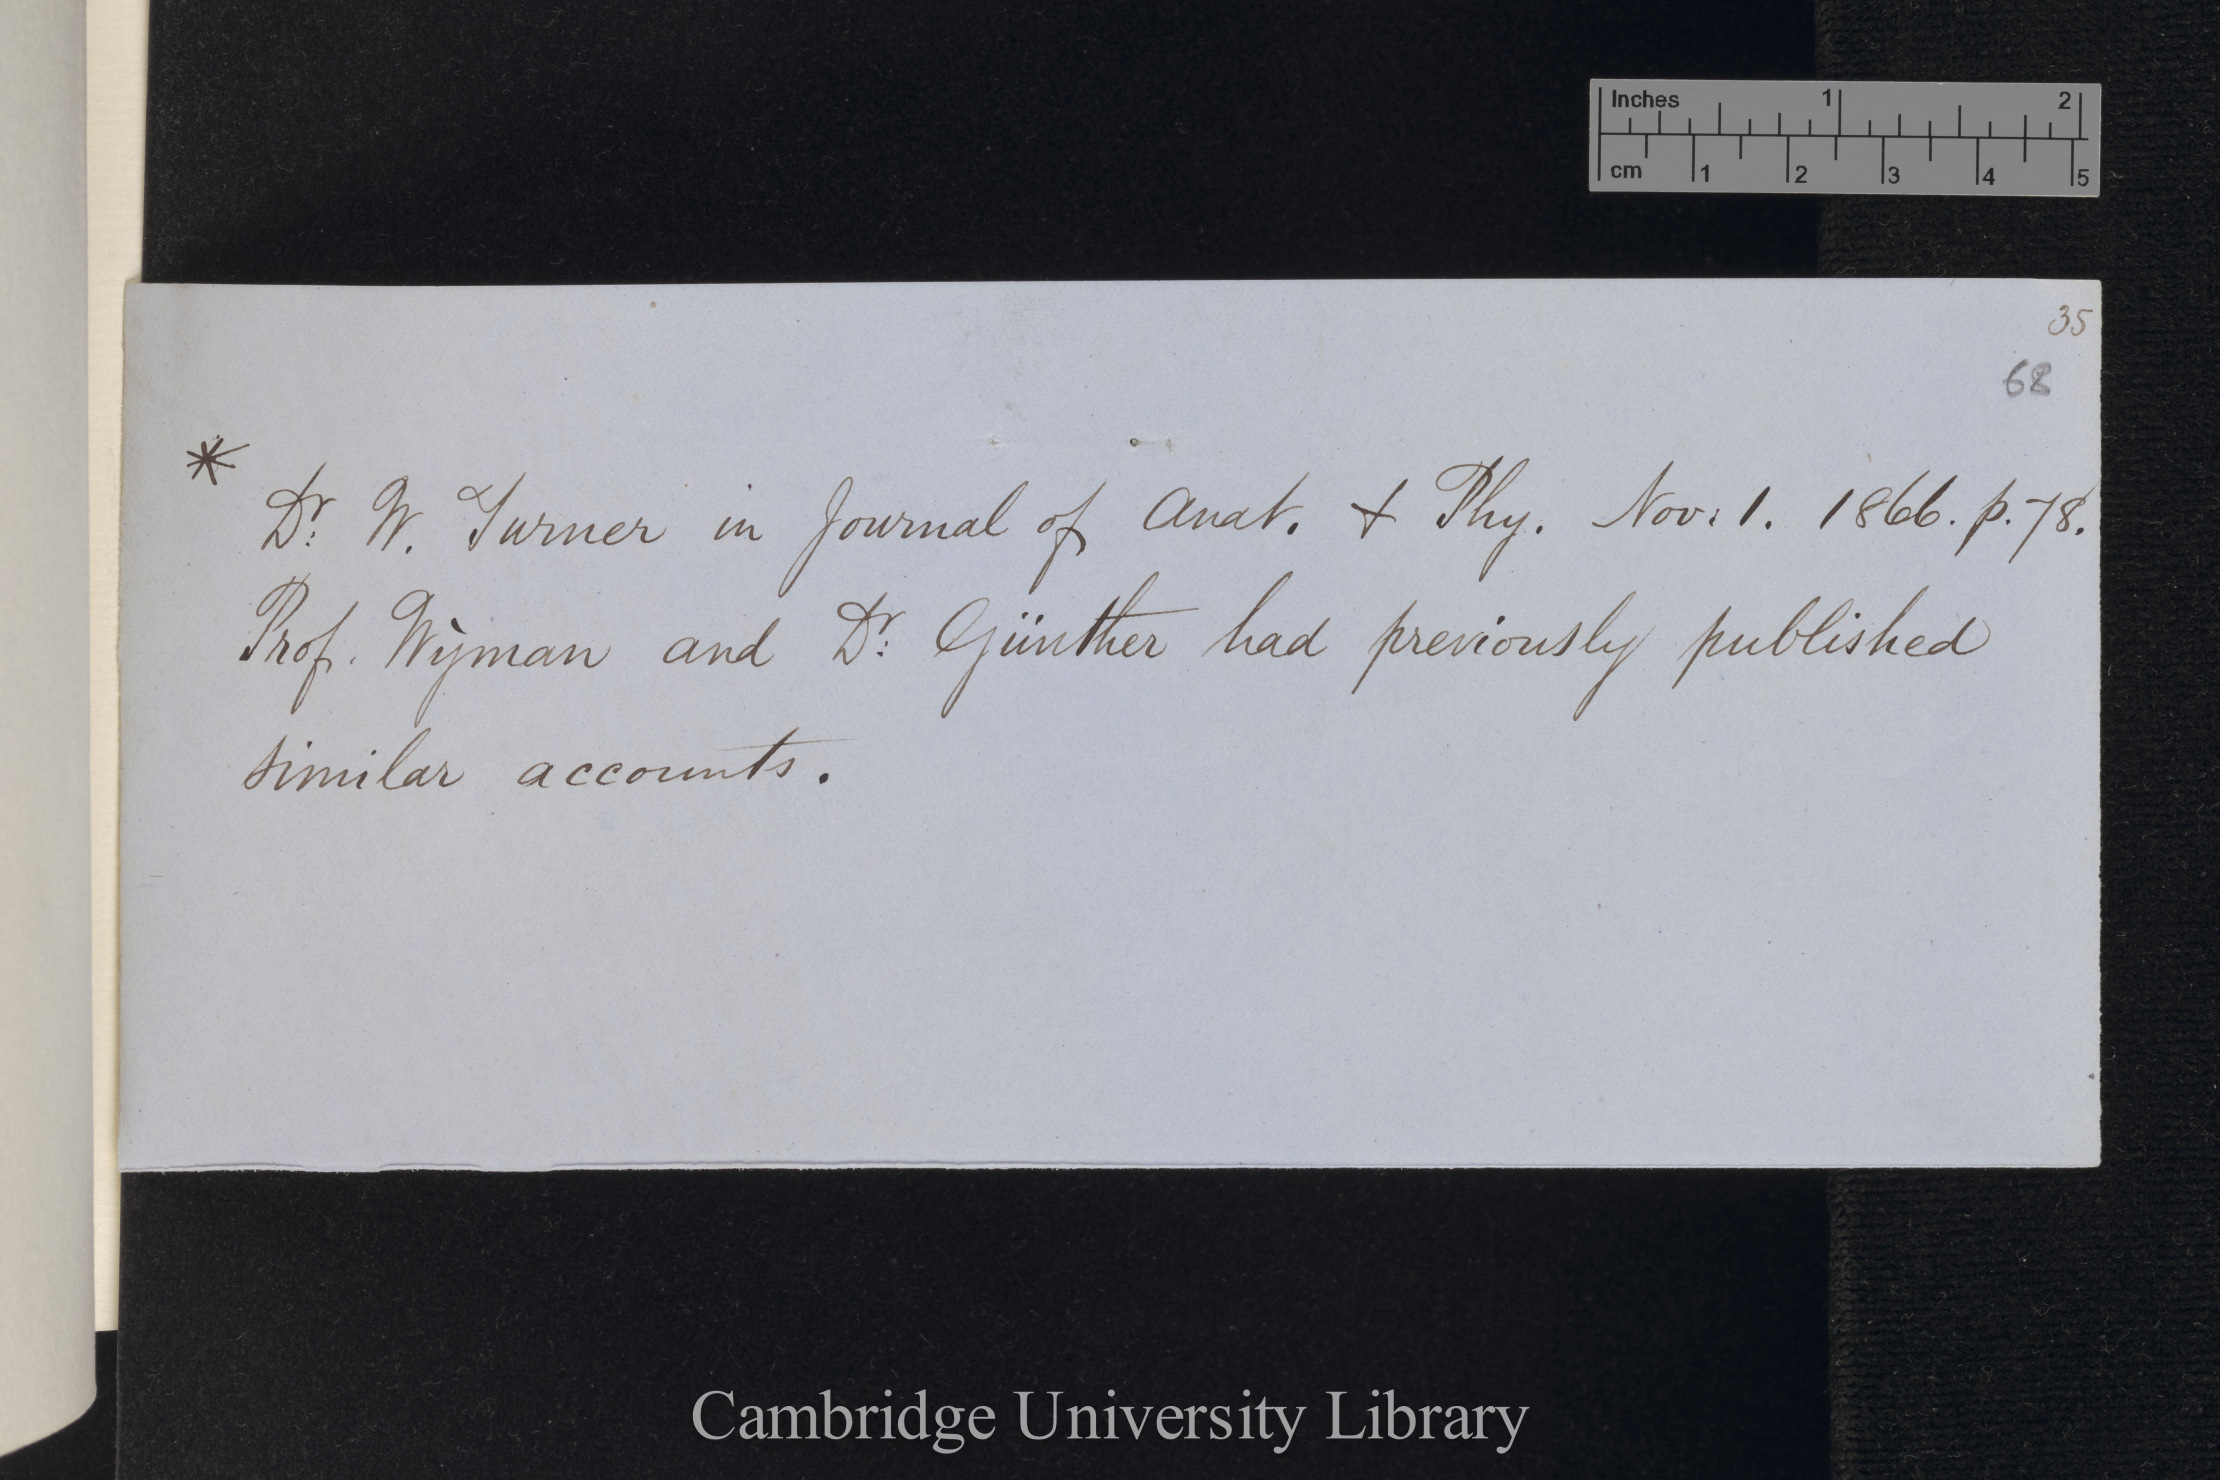 Inches 1 2
cm 1 2 3 4 5
35
68
* Dr. W. Turner in Journal of Anat. & Phy. Nov: 1. 1866. p. 78.
Prof. Wyman and Dr. Günther had previously published
similar accounts.
Cambridge University Library